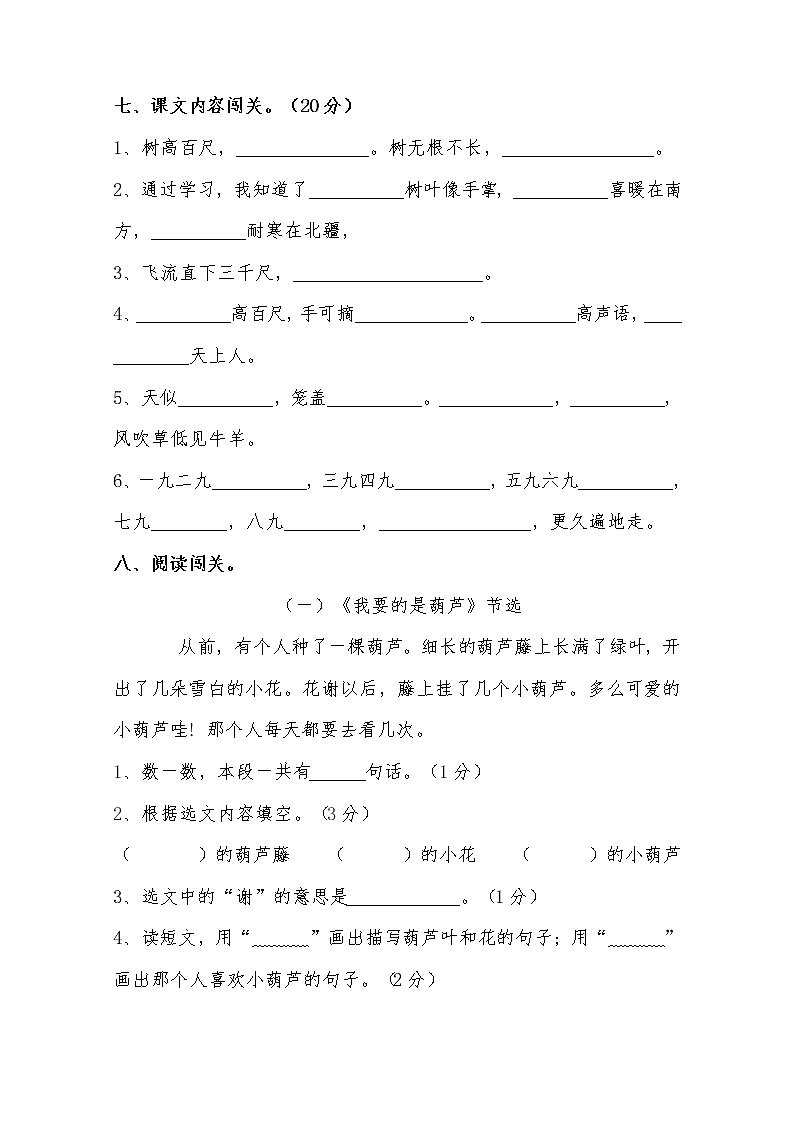 七、课文内容闯关。（20分）
1、树高百尺，______________。树无根不长，________________。
2、通过学习，我知道了__________树叶像手掌，__________喜暖在南
方，__________耐寒在北疆，
3、飞流直下三千尺，____________________。
4、__________高百尺，手可摘____________。__________高声语，____
________天上人。
5、天似__________，笼盖__________。____________，__________，
风吹草低见牛羊。
6、一九二九__________，三九四九__________，五九六九__________，
七九________，八九________，________________，更久遍地走。
八、阅读闯关。
（一）《我要的是葫芦》节选
从前，有个人种了一棵葫芦。细长的葫芦藤上长满了绿叶，开
出了几朵雪白的小花。花谢以后，藤上挂了几个小葫芦。多么可爱的
小葫芦哇！那个人每天都要去看几次。
1、数一数，本段一共有______句话。（1分）
2、根据选文内容填空。（3分）
（　　　）的葫芦藤　（　　　）的小花　（　　　）的小葫芦
3、选文中的“谢”的意思是____________。（1分）
4、读短文，用“______”画出描写葫芦叶和花的句子；用“______”
画出那个人喜欢小葫芦的句子。（2分）